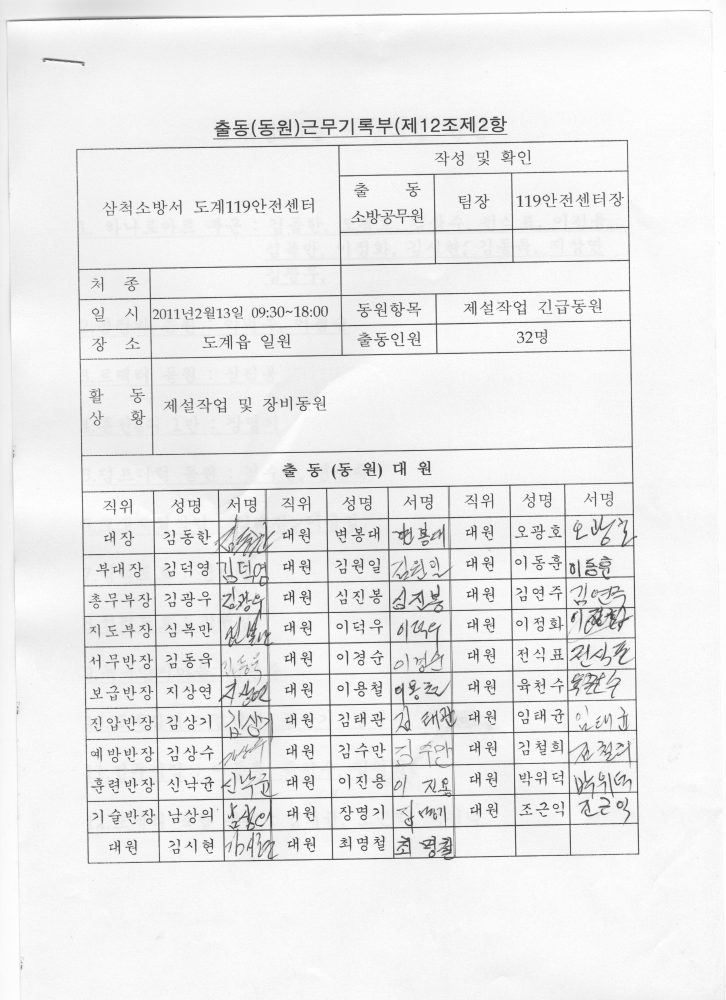 출동(동원)근무기록부(제12조제2항
삼척소방서 도계119안전센터
작성 및 확인
출 동
소방공무원
팀장
119안전센터장
처 종
일 시 2011년2월13일 09:30~18:00 동원항목 제설작업 긴급동원
장 소 도계읍 일원 출동인원 32명
활 동
상 황
제설작업 및 장비동원
출 동 (동 원) 대 원
직위 성명 서명 직위 성명 서명 직위 성명 서명
대장 김동한 대원 변봉대 변봉대 대원 오광호 오광호
부대장 김덕영 김덕영 대원 김원일 김원일 대원 이동훈 이동훈
총무부장 김광우 김광우 대원 심진봉 심진봉 대원 김연주
지도부장 심복만 대원 이덕우 이덕우 대원 이정화 이정화
서무반장 김동욱 김동욱 대원 이경순 이경순 대원 전식표 전식표
보급반장 지상연 지상연 대원 이용철 이용철 대원 육천수 육천수
진압반장 김상기 김상기 대원 김태관 김태관 대원 임태균 임태균
예방반장 김상수 대원 김수만 김수만 대원 김철희 김철희
훈련반장 신낙균 신낙균 대원 이진용 이진용 대원 박위덕 박위덕
기술반장 남상의 남상의 대원 장명기 장명기 대원 조근익 조근익
대원 김시현 김시현 대원 최명철 최명철